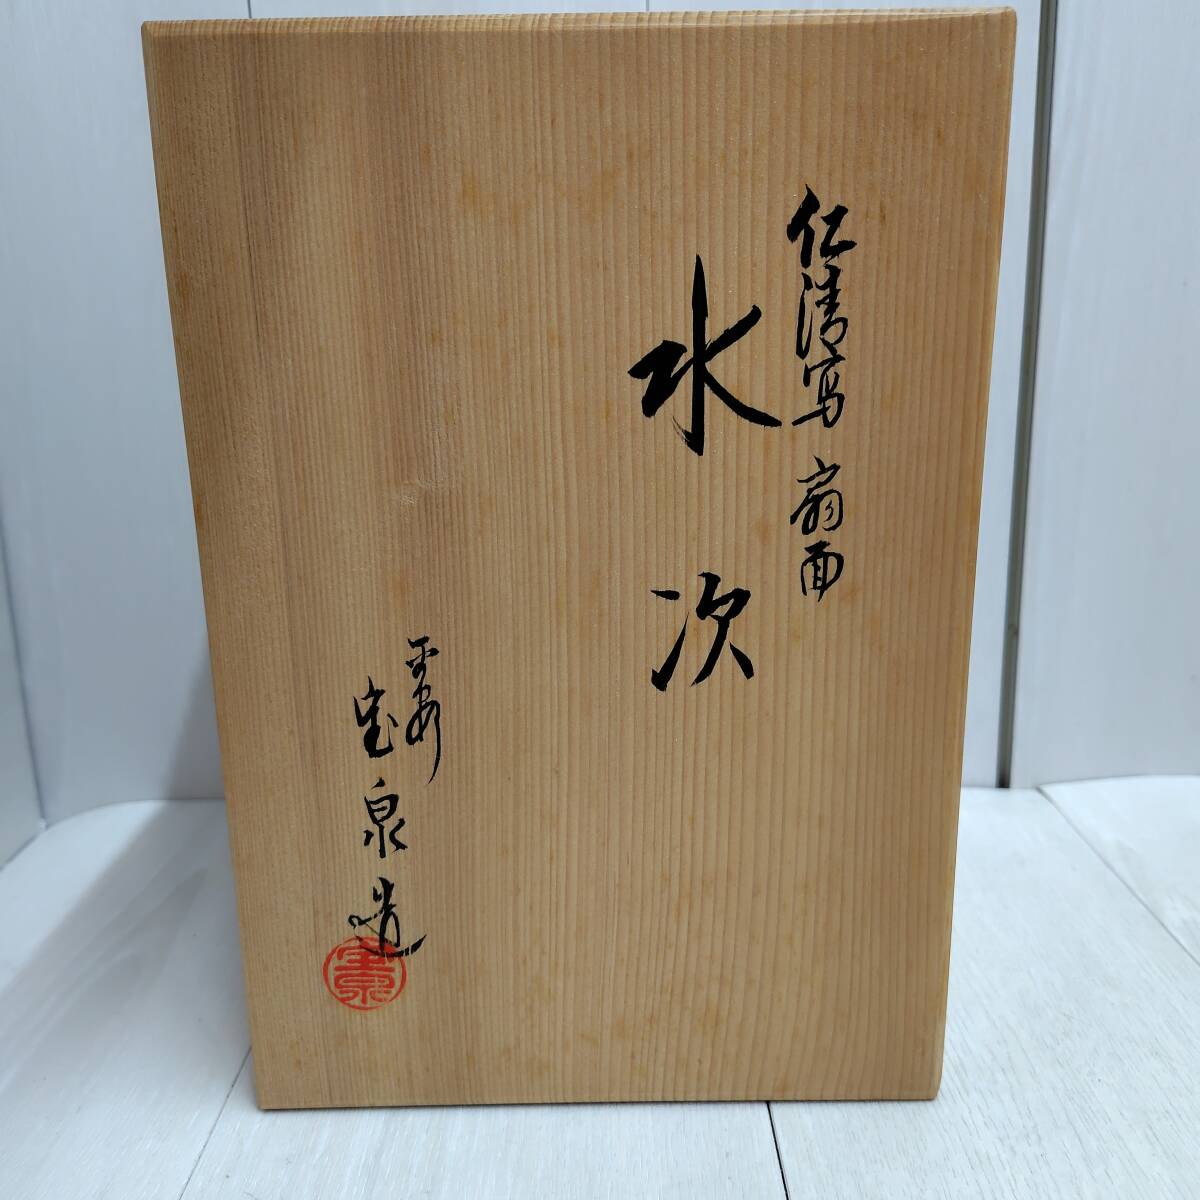 仁清写 扇面
水次
平安
宝泉造
宝泉